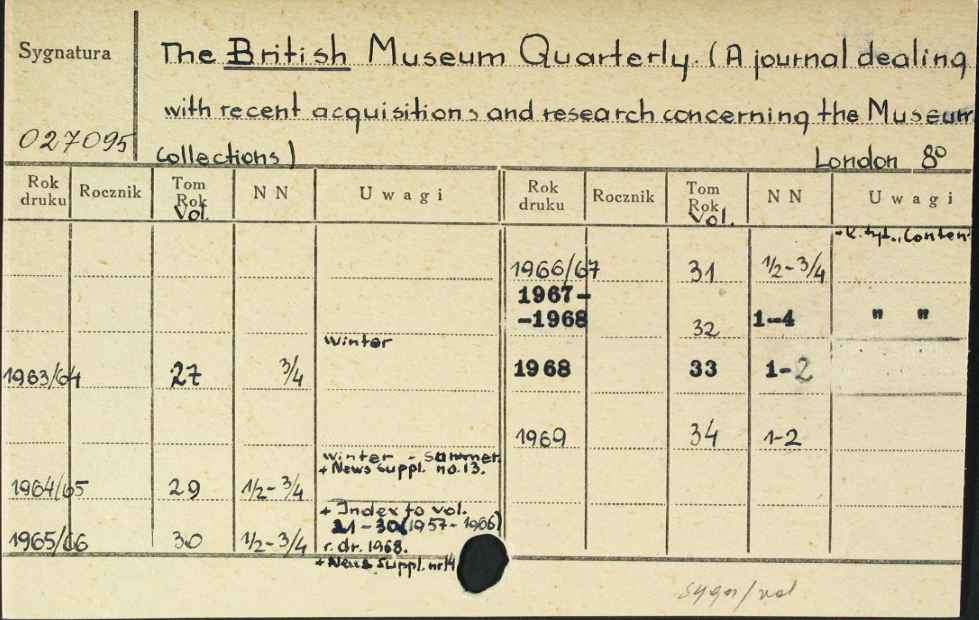 Sygnatura
The British Museum Quarterly. (A journal dealing
with recent acquisitions and research concerning the Museum
027095
collections)
London 8º
Rok druku Rocznik Tom Rok Vol. N N Uwagi
Rok druku Rocznik Tom Rok Vol. N N Uwagi
1963/64 27 3/4 Winter
1964/65 29 1/2-3/4 Winter - summer.
+ News suppl. no. 13.
1965/66 30 1/2-3/4 + Index to vol.
21-30 (1957-1966)
r. dr. 1968.
+ News suppl. nr 14
1966/67 31 1/2-3/4 + k. tyt., Conten
1967-
-1968 32 1-4 " "
1968 33 1-2
1969 34 1-2
sygn/vol